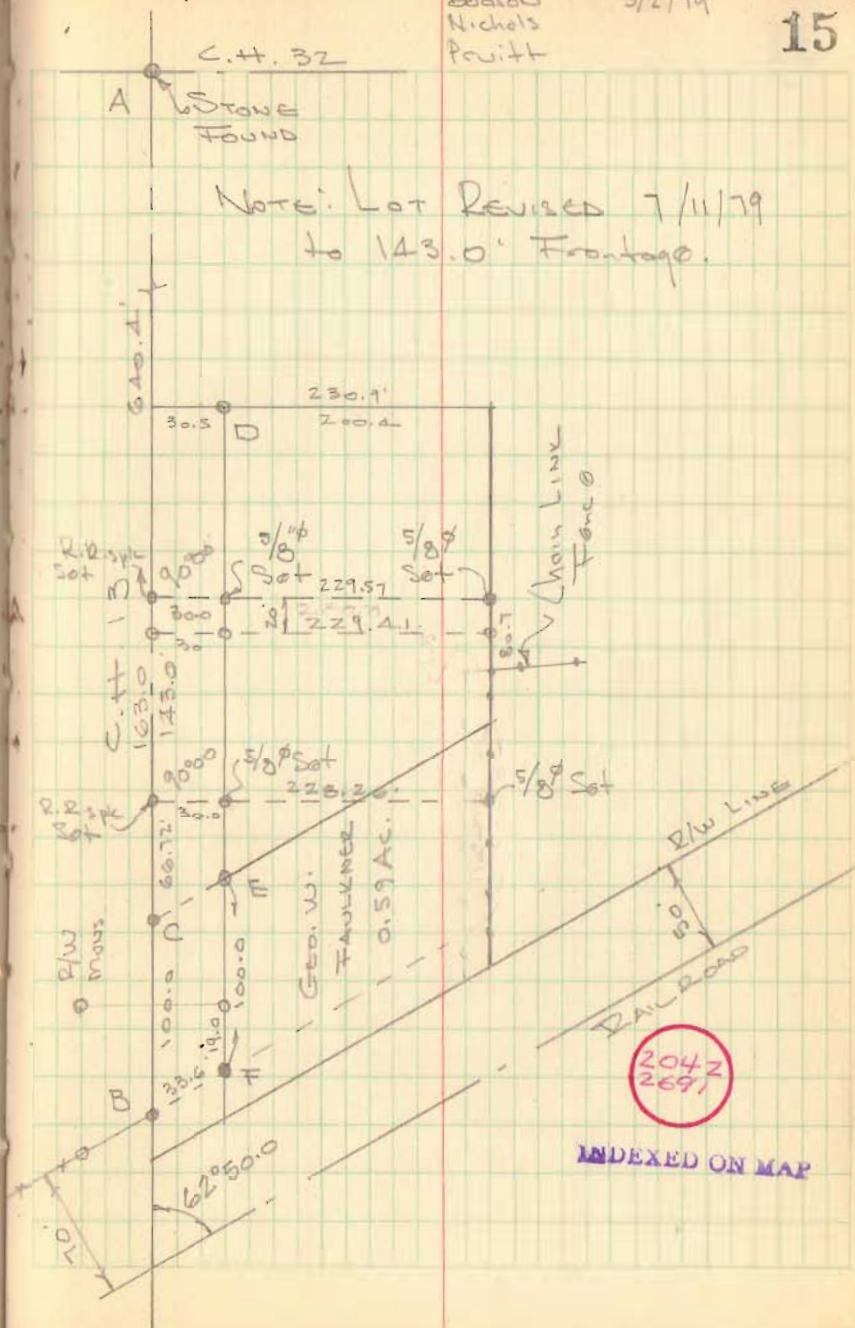 Nichols
Pruitt
5/2/79
15
C.H. 32
A
STONE
FOUND
NOTE: LOT REVISED 7/11/79
to 143.0' Frontage.
640.4'
230.9'
30.5
D
200.4
Chain LINK
Fence
R.R. spk
Set
90°00'
5/8"⌀
Set
5/8⌀
Set
229.57
30.0
20'
229.41
30
80.7
C.H. 13
163.0
143.0'
90°00
5/8⌀ Set
228.26
30.0
5/8⌀ Set
R.R. spk
Set
66.72'
E
C
GEO. W.
FAULKNER
0.59 AC.
R/W LINE
50'
RAILROAD
R/W
MONS.
100.0
100.0
19.0
F
33.6
B
62°50.0
70'
2042
2691
INDEXED ON MAP